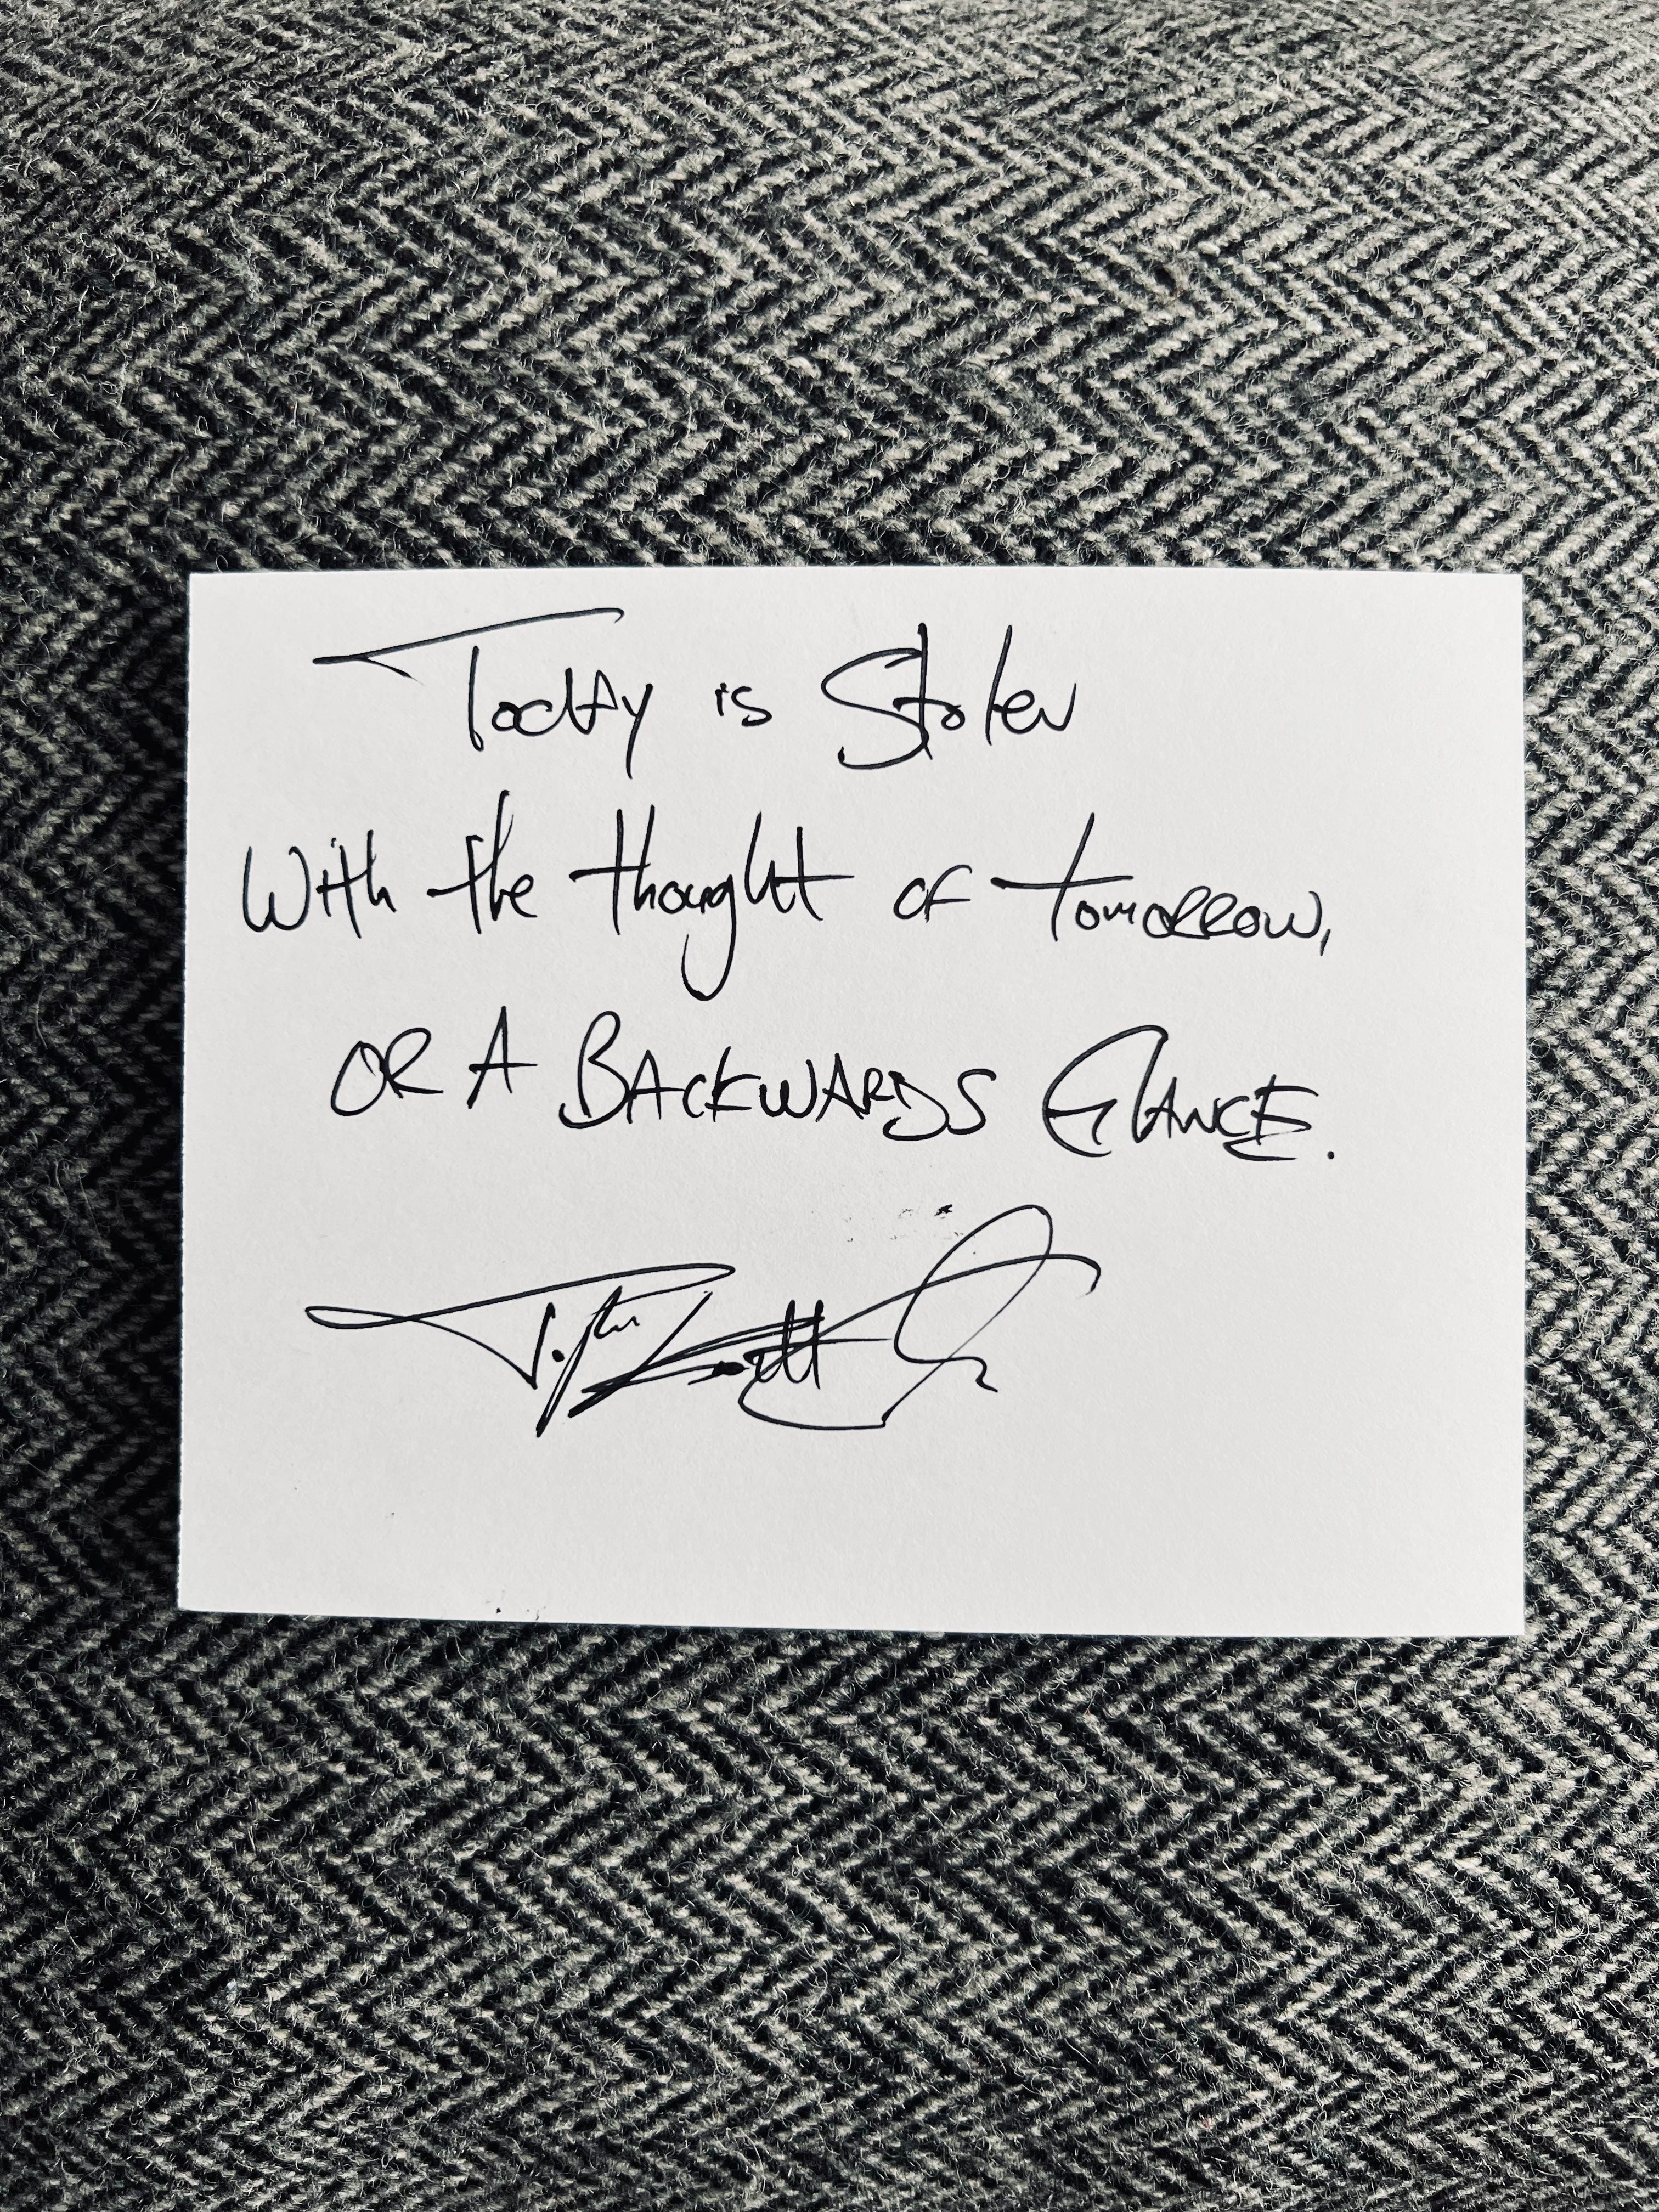 Today is Stolen
With the thought of tomorrow,
OR A BACKWARDS GLANCE.